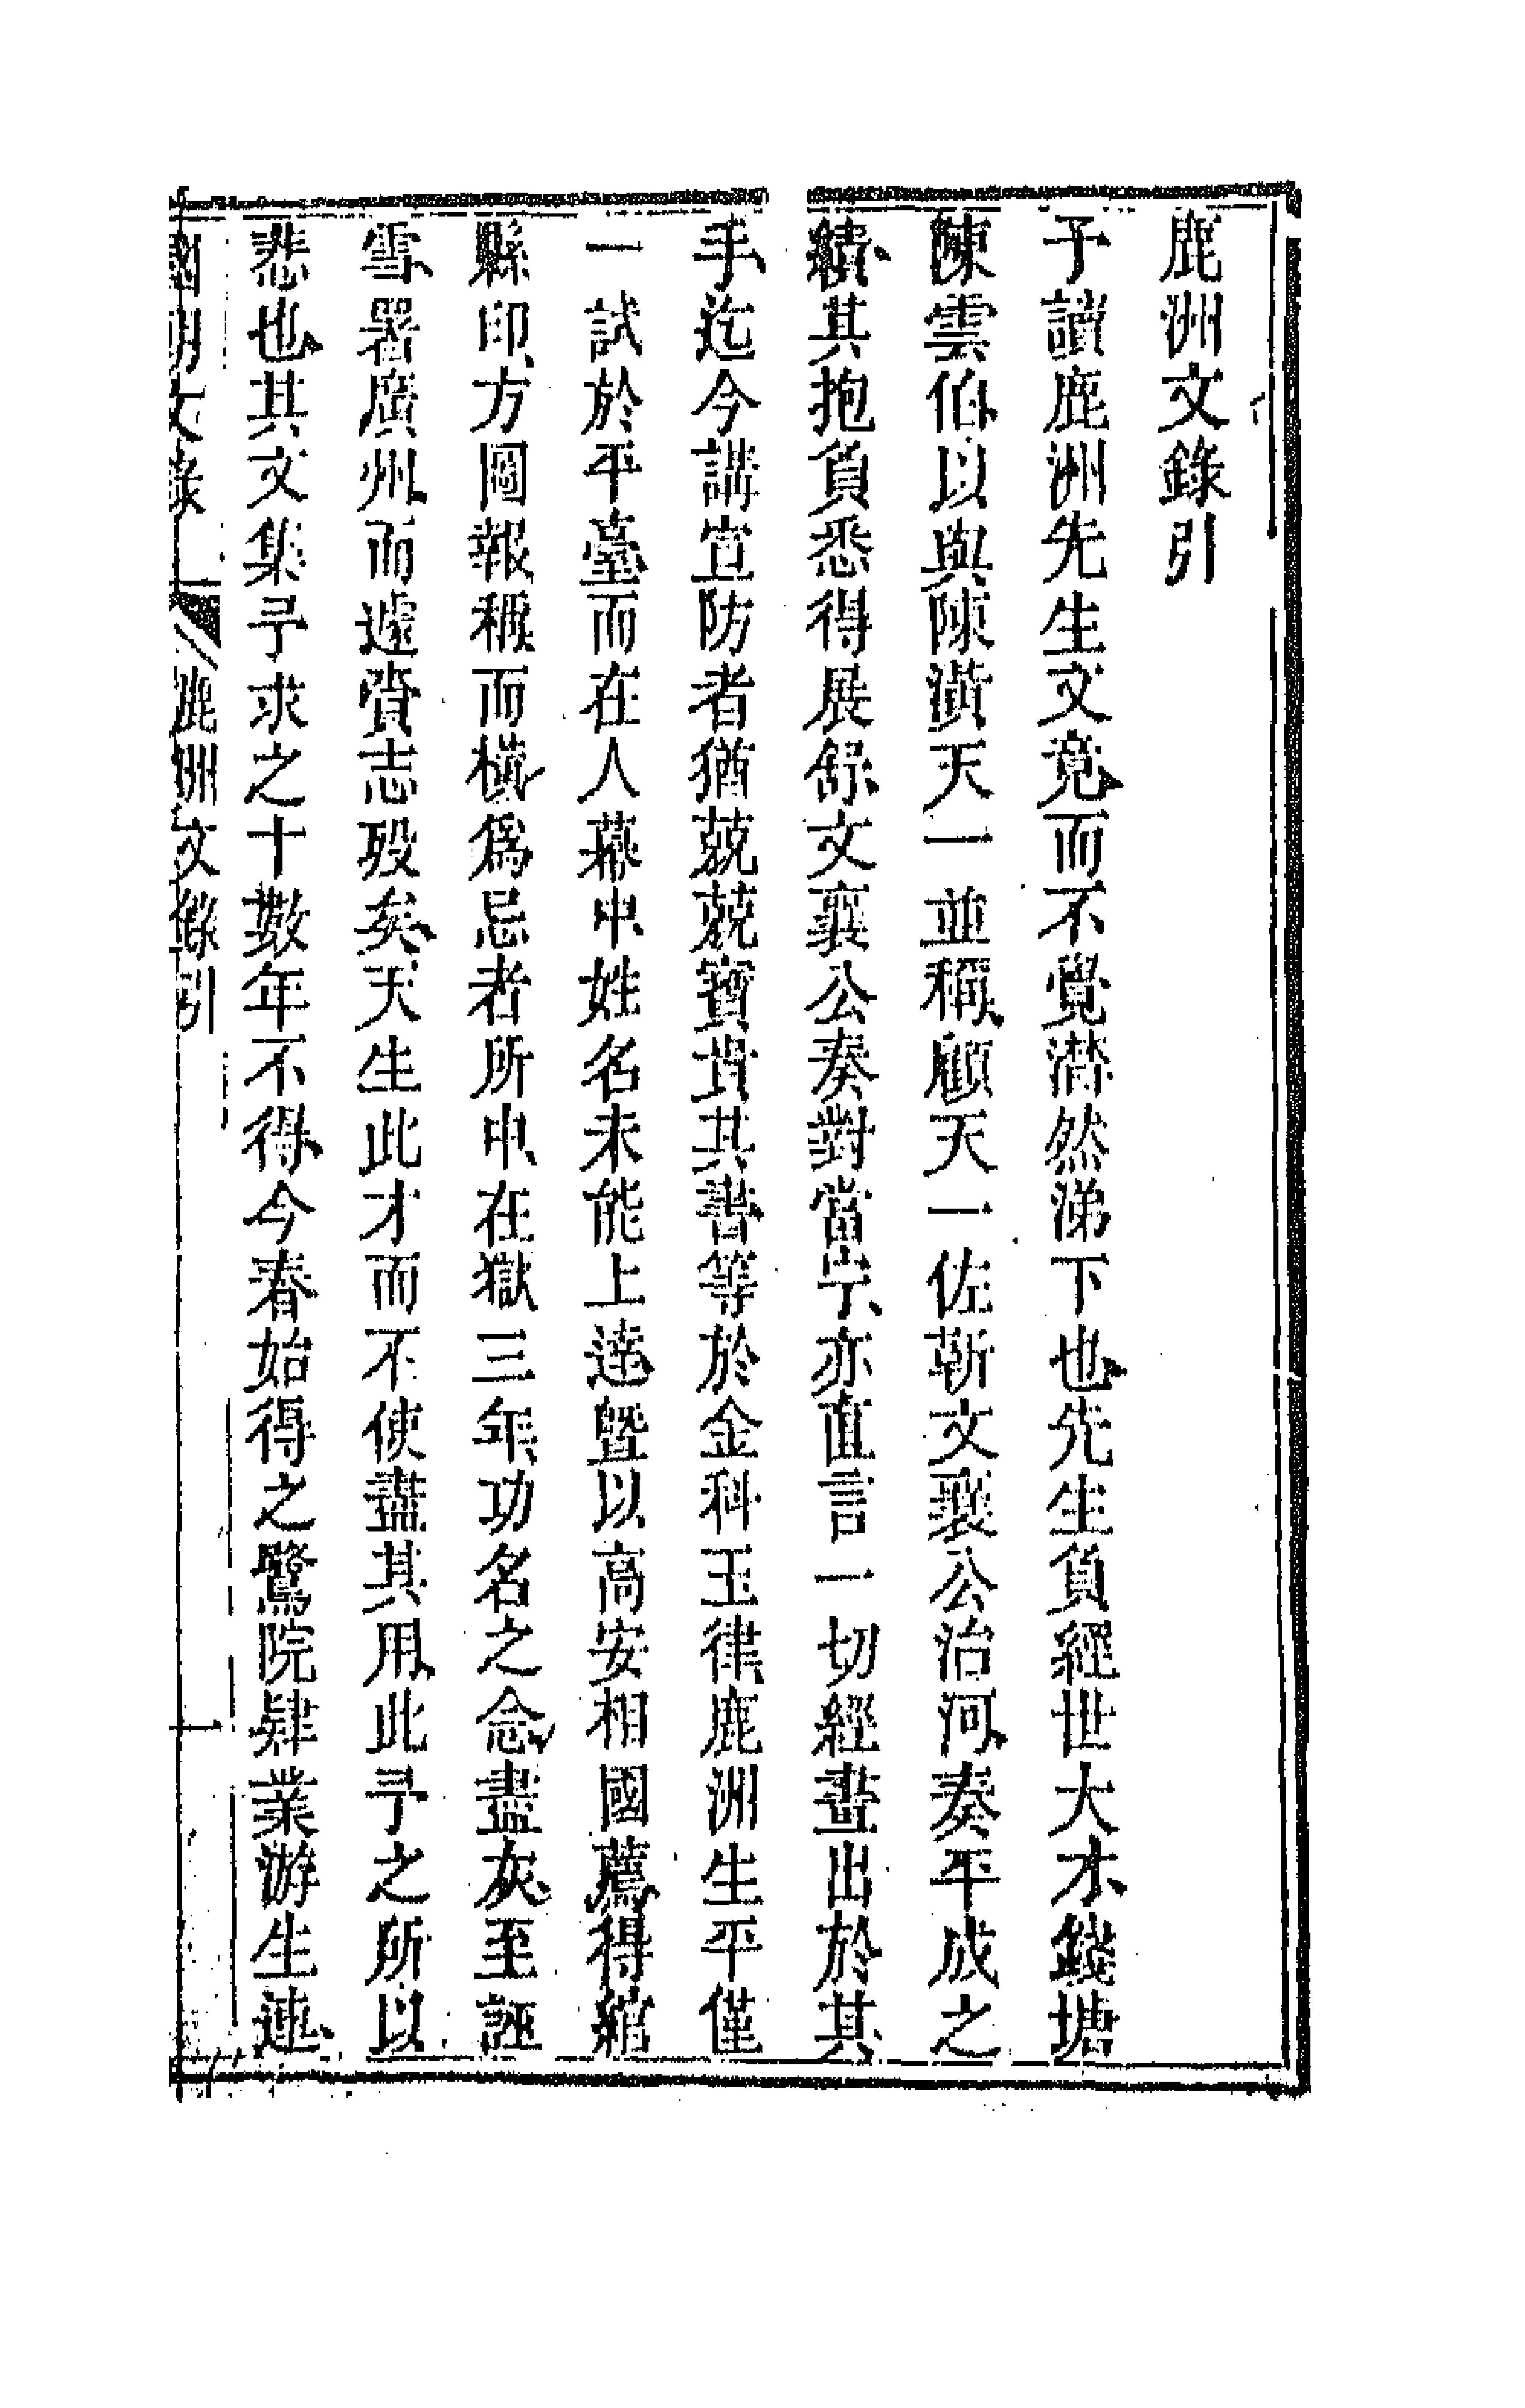 鹿洲文錄引
予讀鹿洲先生文竟而不覺潸然涕下也先生負經世大才錢塘
陳雲伯以與陳潢天一並稱顧天一佐靳文襄公治河奏平成之
績其抱負悉得展舒文襄公奏對當宁亦直言一切經畫出於其
手迄今講宣防者猶兢兢寶貴其書等於金科玉律鹿洲生平僅
一試於平臺而在人幕中姓名未能上達曁以高安相國薦得綰
縣印方圖報稱而橫爲忌者所中在獄三年功名之念盡灰至誣
雪署廣州而遽賫志歿矣天生此才而不使盡其用此予之所以
悲也其文集予求之十數年不得今春始得之鷺院肄業游生連
國朝文錄 鹿洲文錄引 一